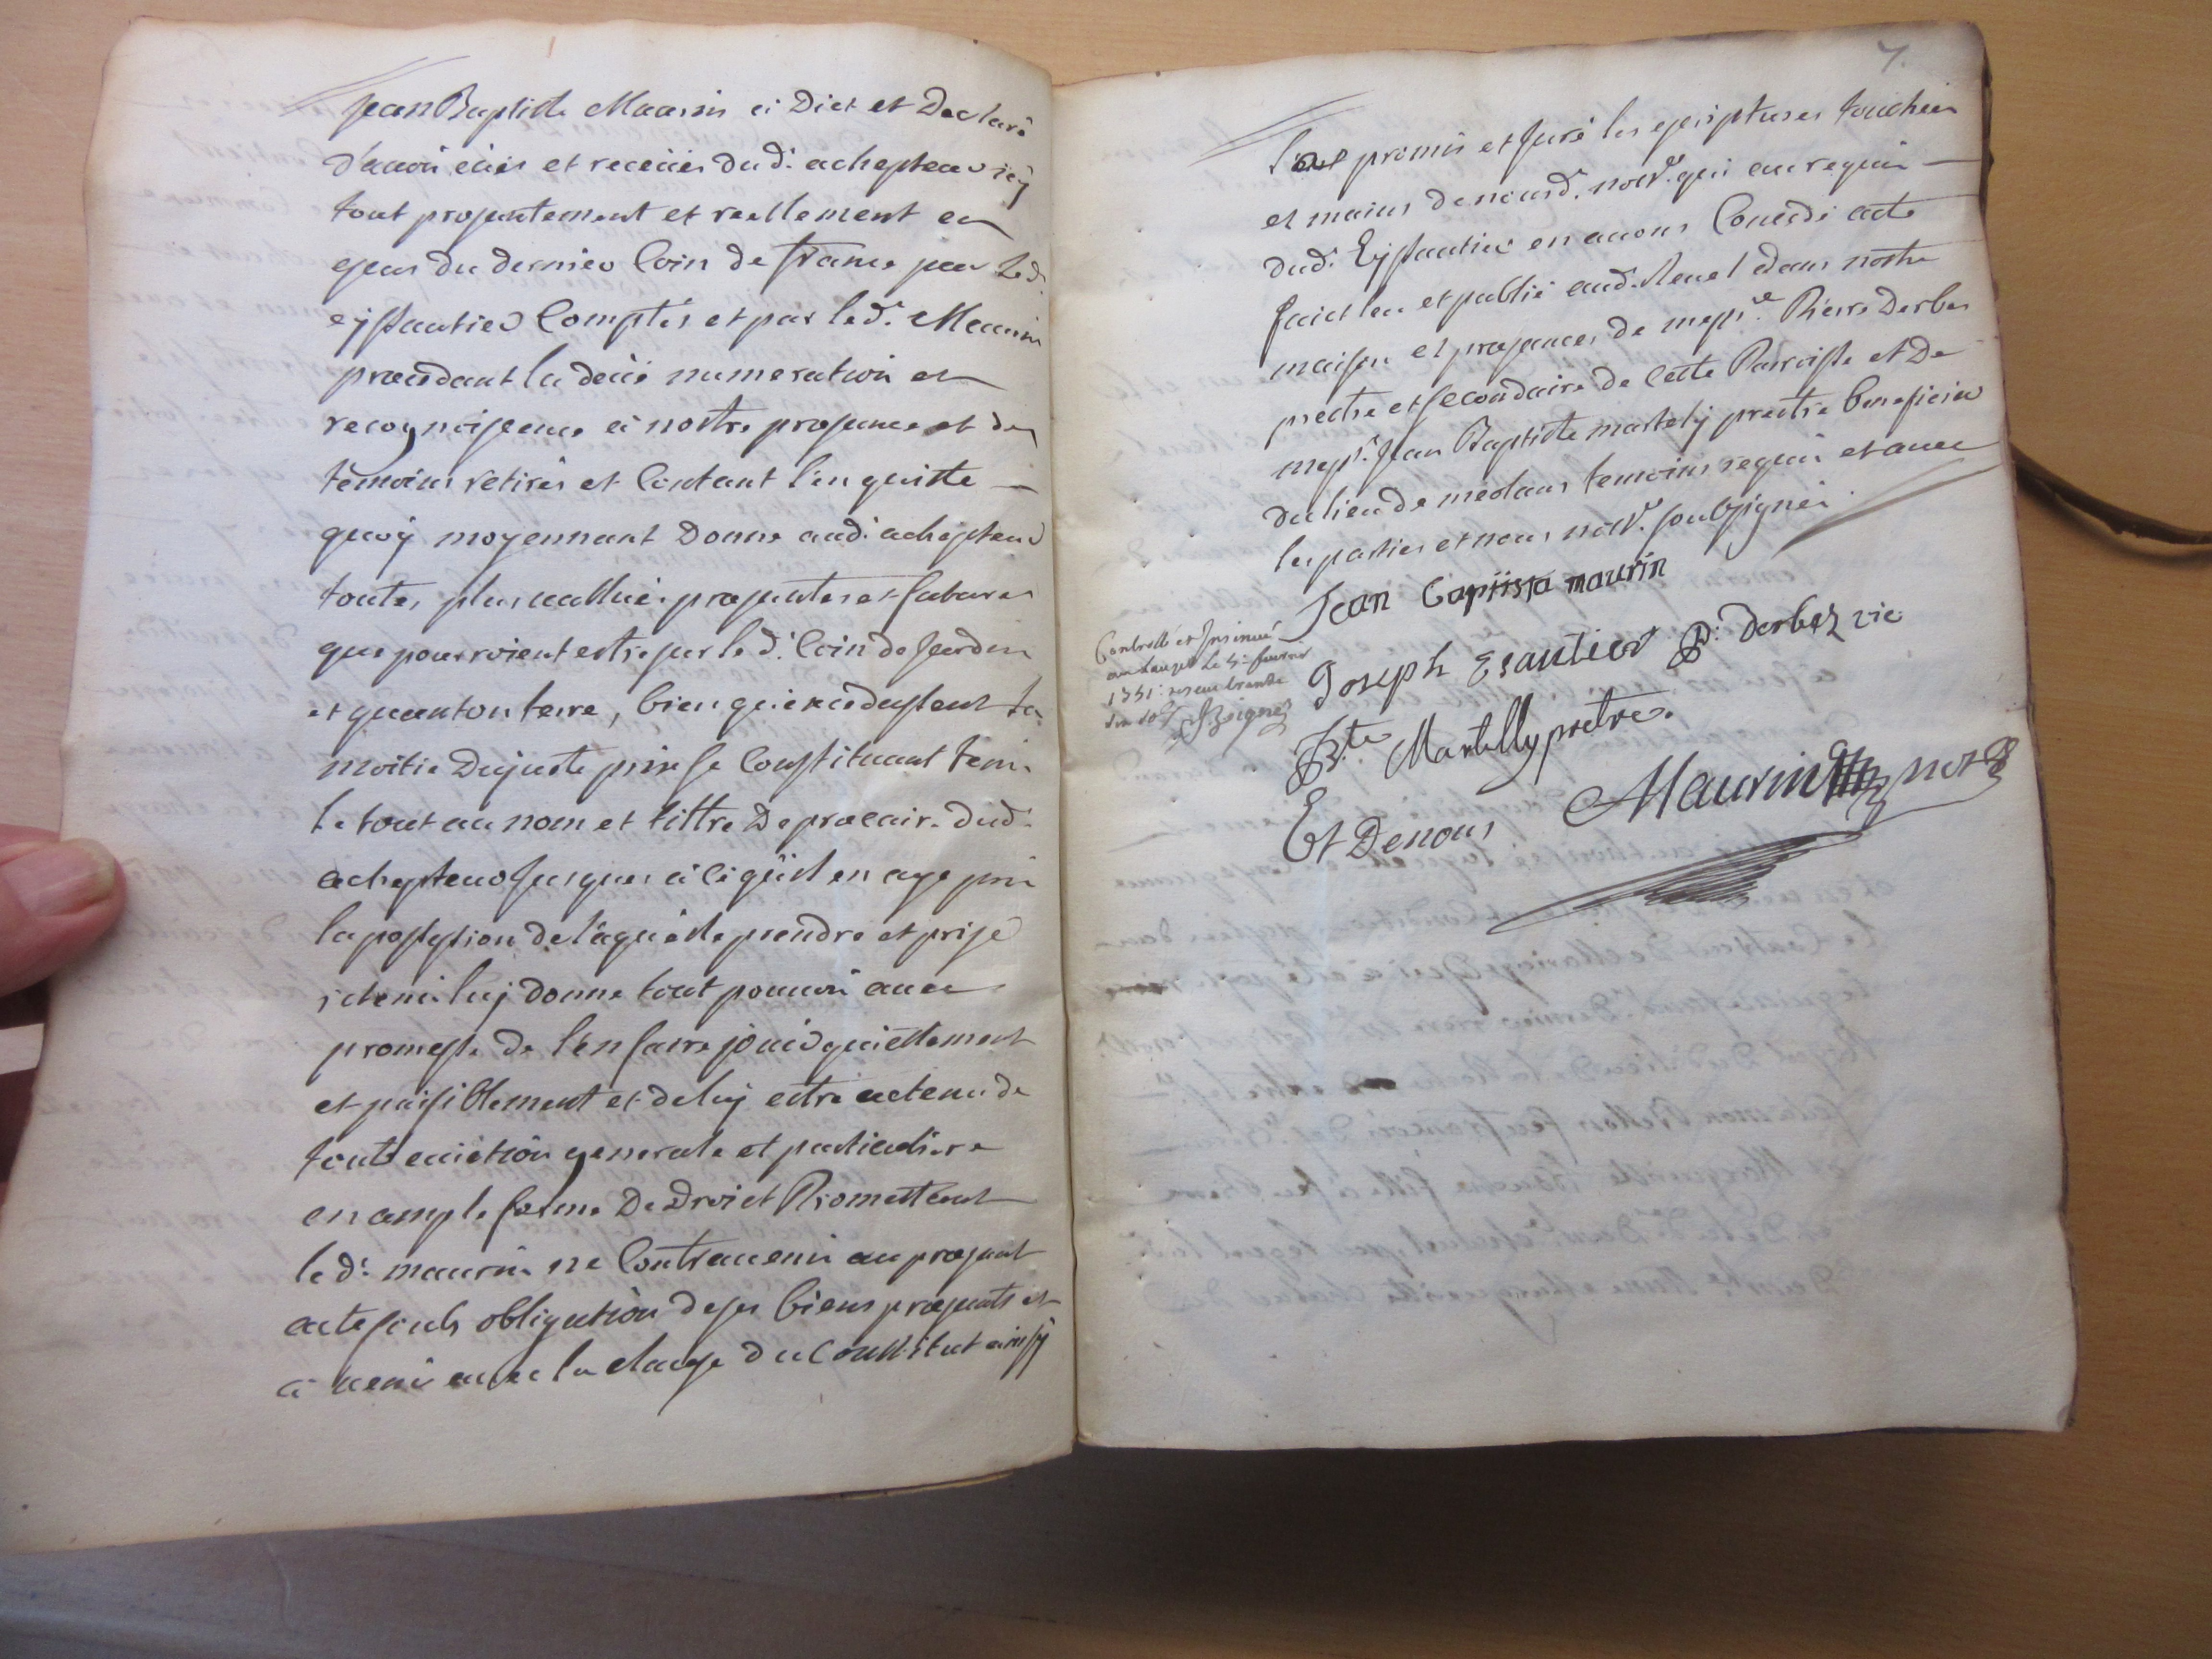 Jean Baptiste Maurin à Dict et Declaré
d'avoir eües et receües dud. achepteur icÿ
tout presentement et reellement en
eyssautier Comptés et par led. Maurin
precedant la deüe numeration et
recognoissence à nostre presence et des
témoins retirés et Contant l'en quitte
quoÿ moyennant Donne aud. achepteur
toutes plus vallües presentes et futures
que pourroient estre sur led. Coin de Jardin
et quanton terre, bien qu'exedassent la
moitié Du juste prix se Constituant tenir
le tout au nom et tittre De precaire dud.
achepteur Jusques à ce qu'il en aye pris
la possession de laquelle prendre et prise
retenir luÿ donne tout pouvoir avec
promesse de l'en faire jouir quiettement
et paisiblement et de luÿ estre attenu de
toute evictiòn generale et particuliere
en ample forme De Droict Promettant
led. maurin ne Contrevenir au present
acte soubs obligation de ses biens presents et
à venir avec la clause du Constitut ainsÿ
7.
l'ont promis et Juré les escriptures touchées
et mains de nousd. nore. qui au requis
dud. Eyssautier en avons Concedé acte
faict leu et publié aud. Revel dans nostre
maison es presances de messre. Pierre Derbes
prestre et secondaire de cette Parroisse et De
messr. Jean Baptiste martelÿ prestre beneficier
du lieu de meolans temoins requis et avec
les parties et nous nore. soubsignés.
Jean baptista maurin
Joseph Esautier P. Derbez vic
Bte Martelly prêtre.
Et De nous Maurin nore
Controllé et Insinué
au Lauzet le 5e fevrier
1751